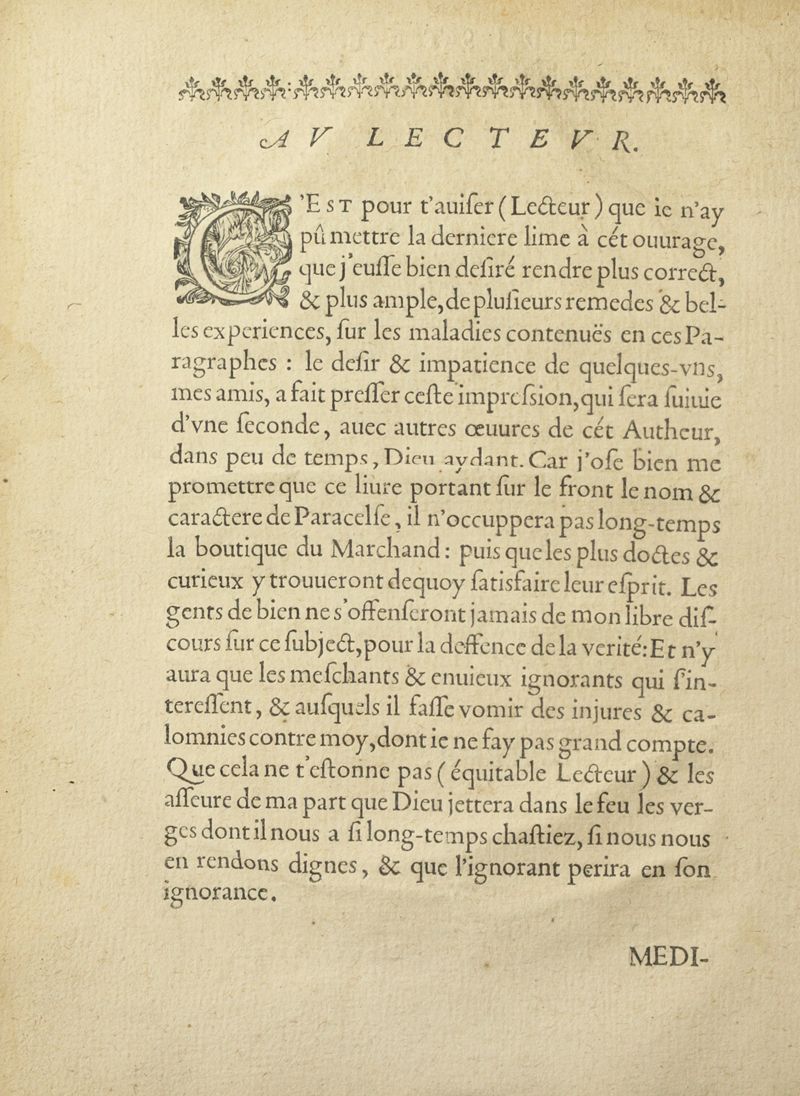 AV LECTEVR.
C'EST pour t'auiſer (Lecteur) que ie n'ay
pû mettre la derniere lime à cét ouurage,
que j'euſſe bien deſiré rendre plus correct,
& plus ample, de pluſieurs remedes & bel-
les experiences, ſur les maladies contenuës en ces Pa-
ragraphes : le deſir & impatience de quelques-vns,
mes amis, a fait preſſer ceſte impreſsion, qui ſera ſuiuie
d'vne ſeconde, auec autres œuures de cét Autheur,
dans peu de temps, Dieu aydant. Car j'oſe bien me
promettre que ce liure portant ſur le front le nom &
caractere de Paracelſe, il n'occuppera pas long-temps
la boutique du Marchand : puis que les plus doctes &
curieux y trouueront dequoy ſatisfaire leur eſprit. Les
gents de bien ne s'offenſeront jamais de mon libre diſ-
cours ſur ce ſubject, pour la deffence de la verité: Et n'y
aura que les meſchants & enuieux ignorants qui ſ'in-
tereſſent, & auſquels il faſſe vomir des injures & ca-
lomnies contre moy, dont ie ne fay pas grand compte.
Que cela ne t'eſtonne pas (équitable Lecteur) & les
aſſeure de ma part que Dieu jettera dans le feu les ver-
ges dont il nous a ſi long-temps chaſtiez, ſi nous nous
en rendons dignes, & que l'ignorant perira en ſon
ignorance.
MEDI-